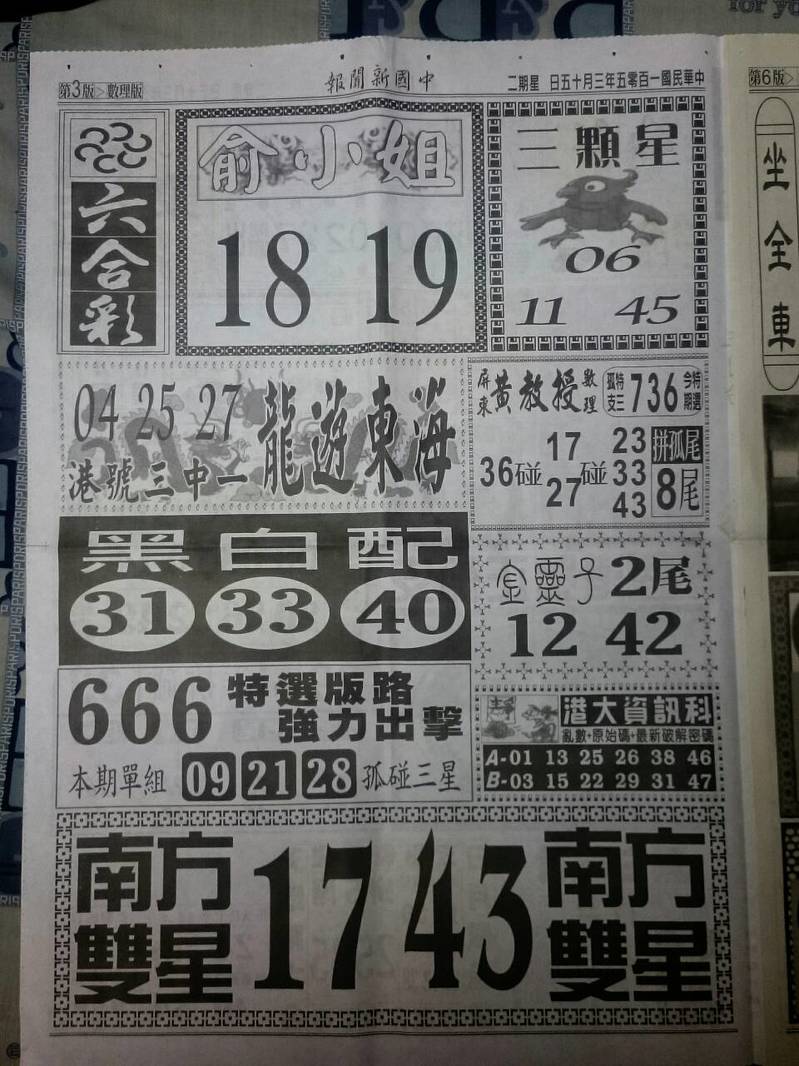 第3版>數理版
報聞新國中
二期星 日五十月三年五零百一國民華中
第6版>
for yo
六合彩
俞小姐
18 19
三顆星
06
11 45
04 25 27
港號三中一
龍遊東海
屏東 黃教授 數理
特孤三支 736 今期特選
36碰 17 27 碰 23 33 43
拼孤尾
8尾
黑白配
31 33 40
金靈子 2尾
12 42
666 特選版路
強力出擊
本期單組 09 21 28 孤碰三星
港大資訊科
亂數+原始碼+最新破解密碼
A-01 13 25 26 38 46
B-03 15 22 29 31 47
南方雙星 17 43 南方雙星
坐全車
PARIS PARIS PARIS PARIS